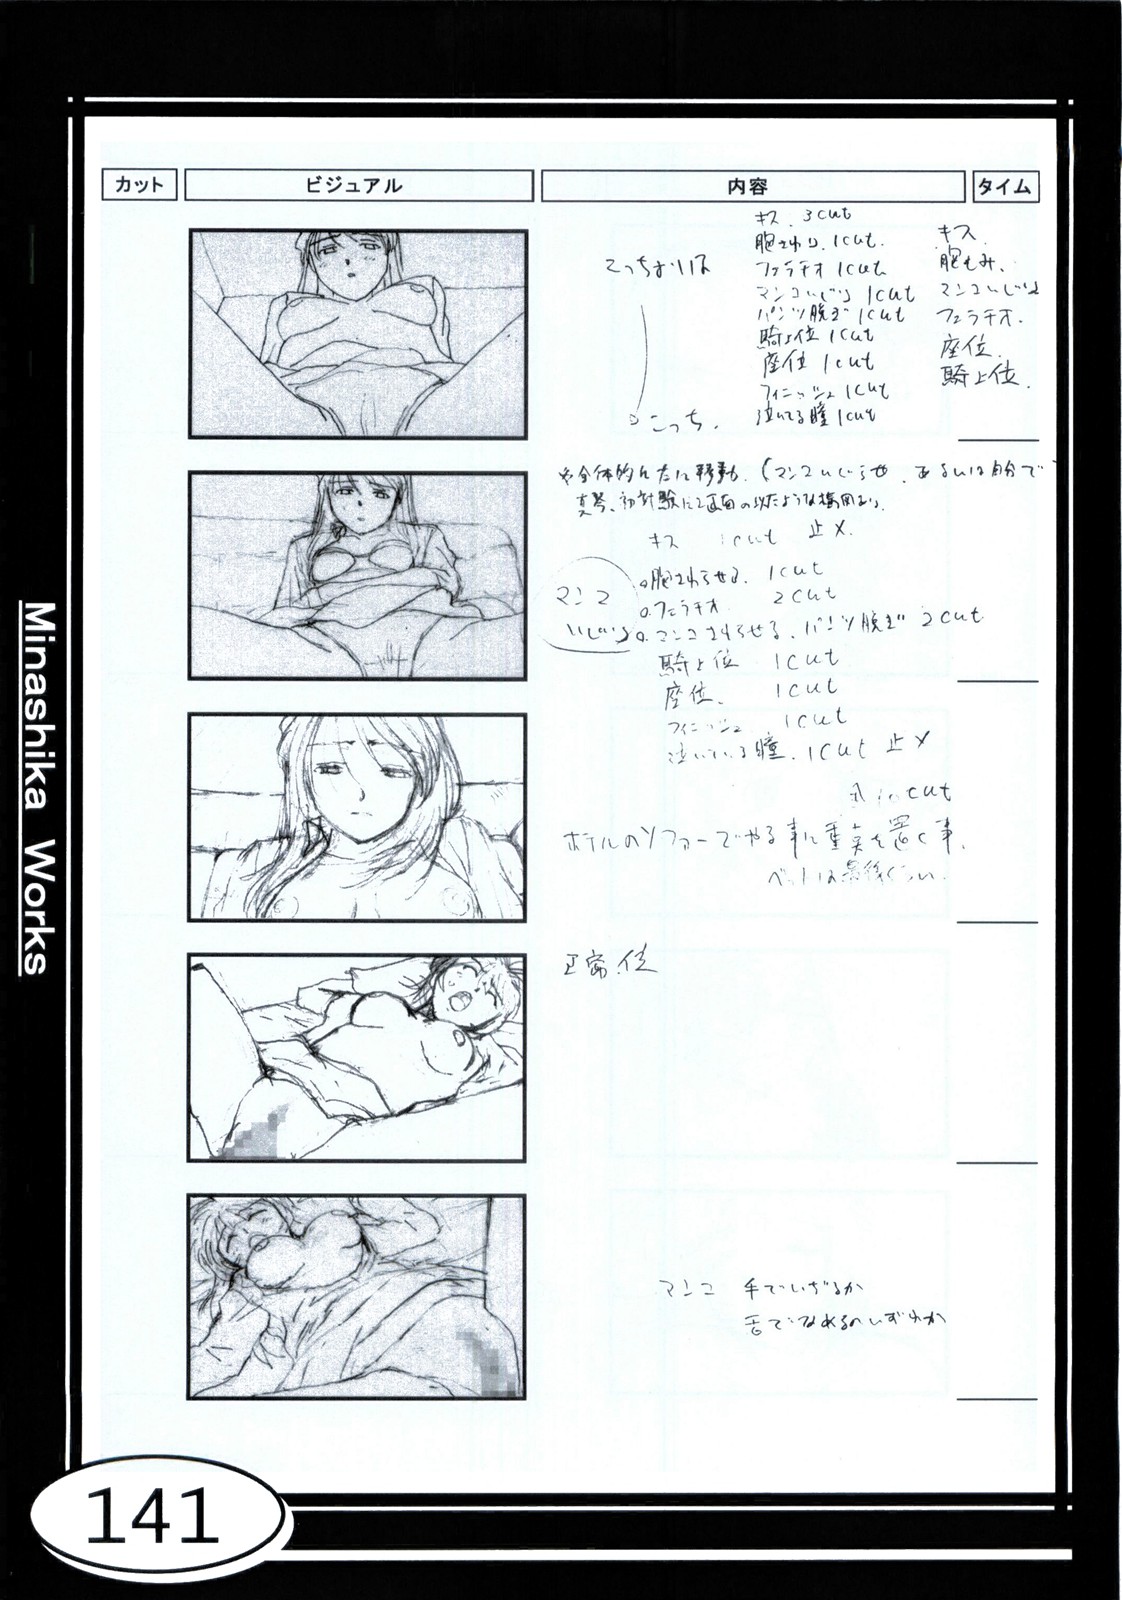 カット
ビジュアル
内容
タイム
こっちよりは
こっち.
キス. 3cut
胸さわり. 1cut.
フェラチオ 1cut
マンコいじり 1cut
パンツ脱ぎ 1cut
騎上位 1cut
座位 1cut
フィニッシュ 1cut
泣いてる瞳 1cut
キス.
胸もみ.
マンコいじり
フェラチオ.
座位.
騎上位.
キス 1cut 止メ.
マンコ
いじり
胸さわらせる. 1cut
フェラチオ. 2cut
マンコさわらせる. パンツ脱ぎ 2cut
騎上位 1cut
座位. 1cut
フィニッシュ 1cut
泣いている瞳. 1cut 止メ
cut
ホテルのソファーでやる事に重点を置く事.
ベットは最後ぐらい.
正常位
マンコ 手でいじるか
舌でなめるのいずれか
Minashika Works
141